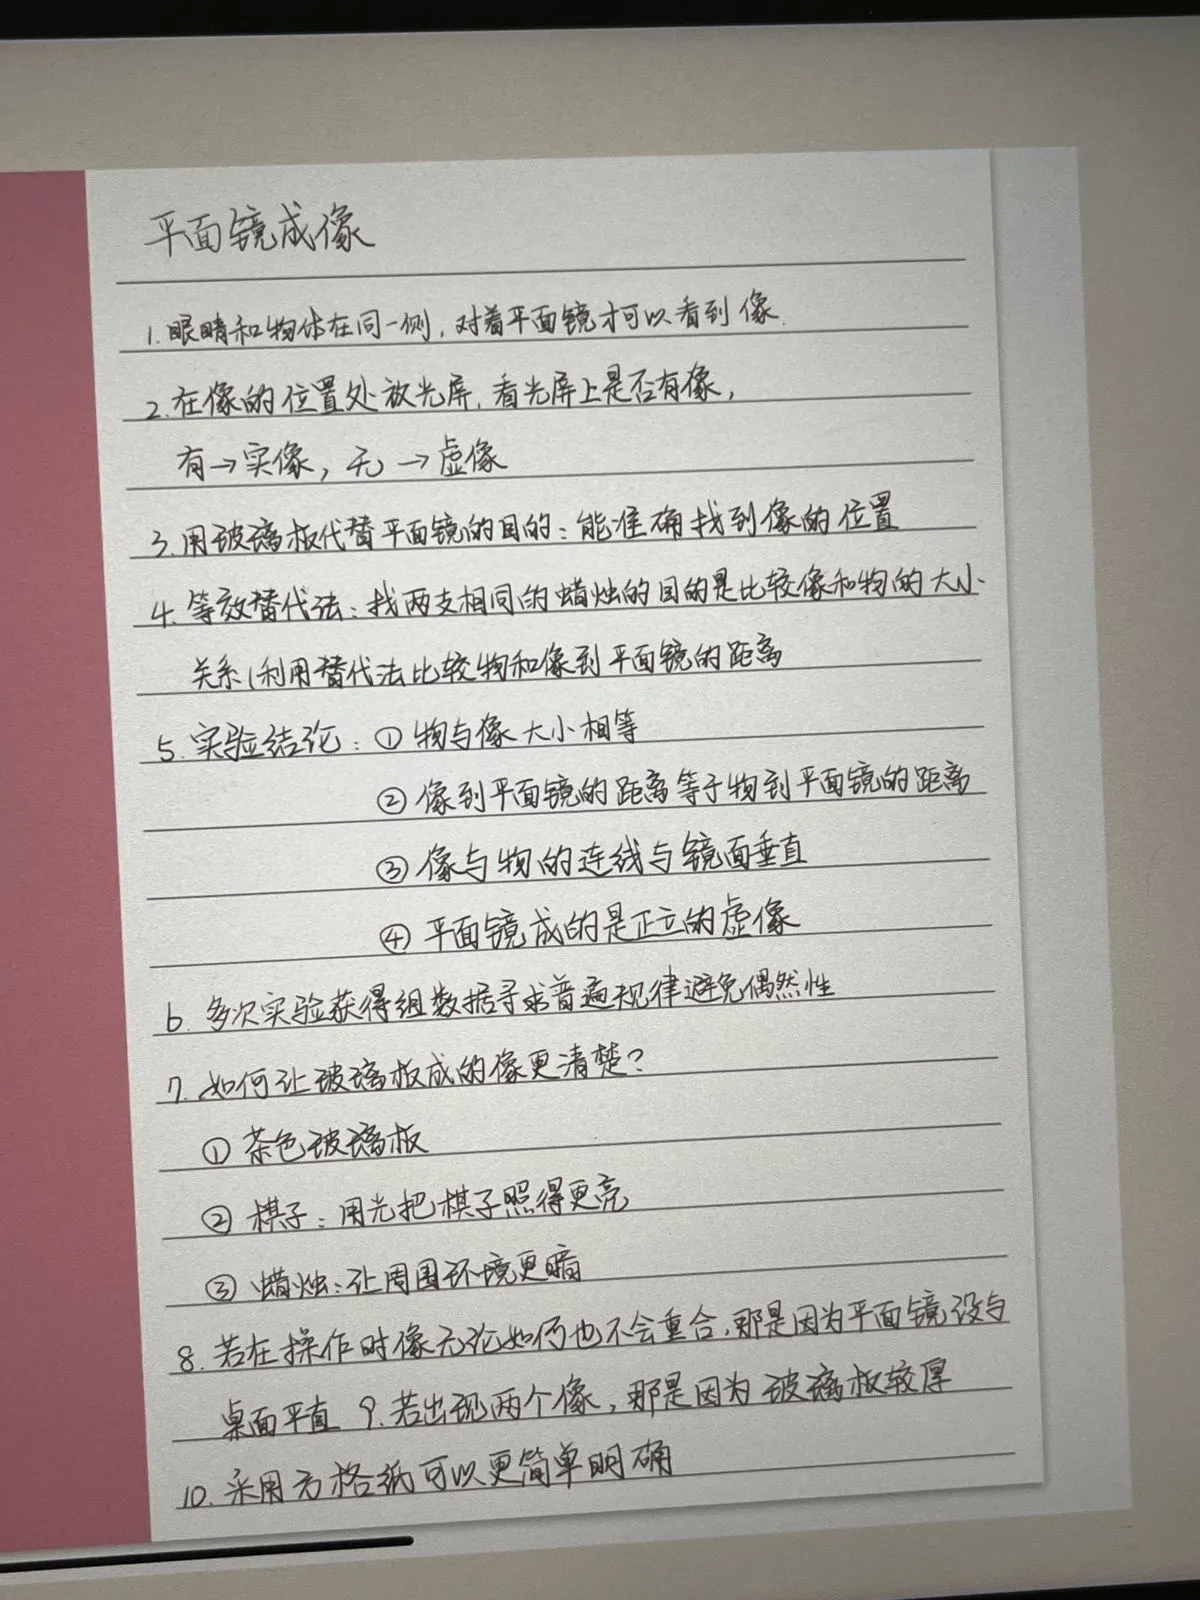 平面镜成像
1.眼睛和物体在同一侧,对着平面镜才可以看到像.
2.在像的位置处放光屏,看光屏上是否有像,
有→实像,无→虚像
3.用玻璃板代替平面镜的目的:能准确找到像的位置
4.等效替代法:找两支相同的蜡烛的目的是比较像和物的大小
关系(利用替代法比较物和像到平面镜的距离
5.实验结论:①物与像大小相等
②像到平面镜的距离等于物到平面镜的距离
③像与物的连线与镜面垂直
④平面镜成的是正立的虚像
6.多次实验获得组数据寻求普遍规律避免偶然性
7.如何让玻璃板成的像更清楚?
①茶色玻璃板
②棋子:用光把棋子照得更亮
③蜡烛:让周围环境更暗
8.若在操作时像无论如何也不会重合,那是因为平面镜没与
桌面平直 9.若出现两个像,那是因为玻璃板较厚
10.采用方格纸可以更简单明确